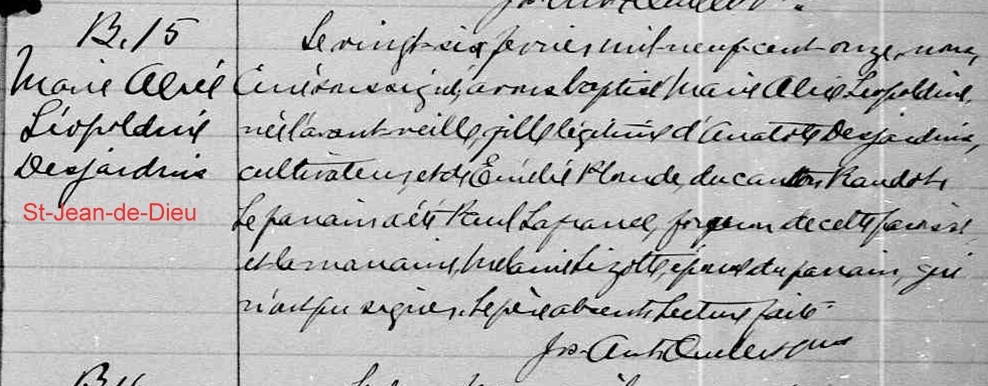 B. 15
Marie Alice
Léopoldine
Desjardins
St-Jean-de-Dieu
Le vingt-six février mil neuf cent onze, nous,
Curé soussigné, avons baptisé Marie Alice Léopoldine,
née l'avant-veille, fille légitime d'Anatole Desjardins,
cultivateur, et de Émélie Plourde, du canton Raudot.
Le parrain a été Paul Lafrance, forgeron de cette paroisse
et la marraine, Mélanie Lizotte, épouse du parrain, qui
n'ont pu signer. Le père absent. Lecture faite.
Jos. Ant. Ouellet